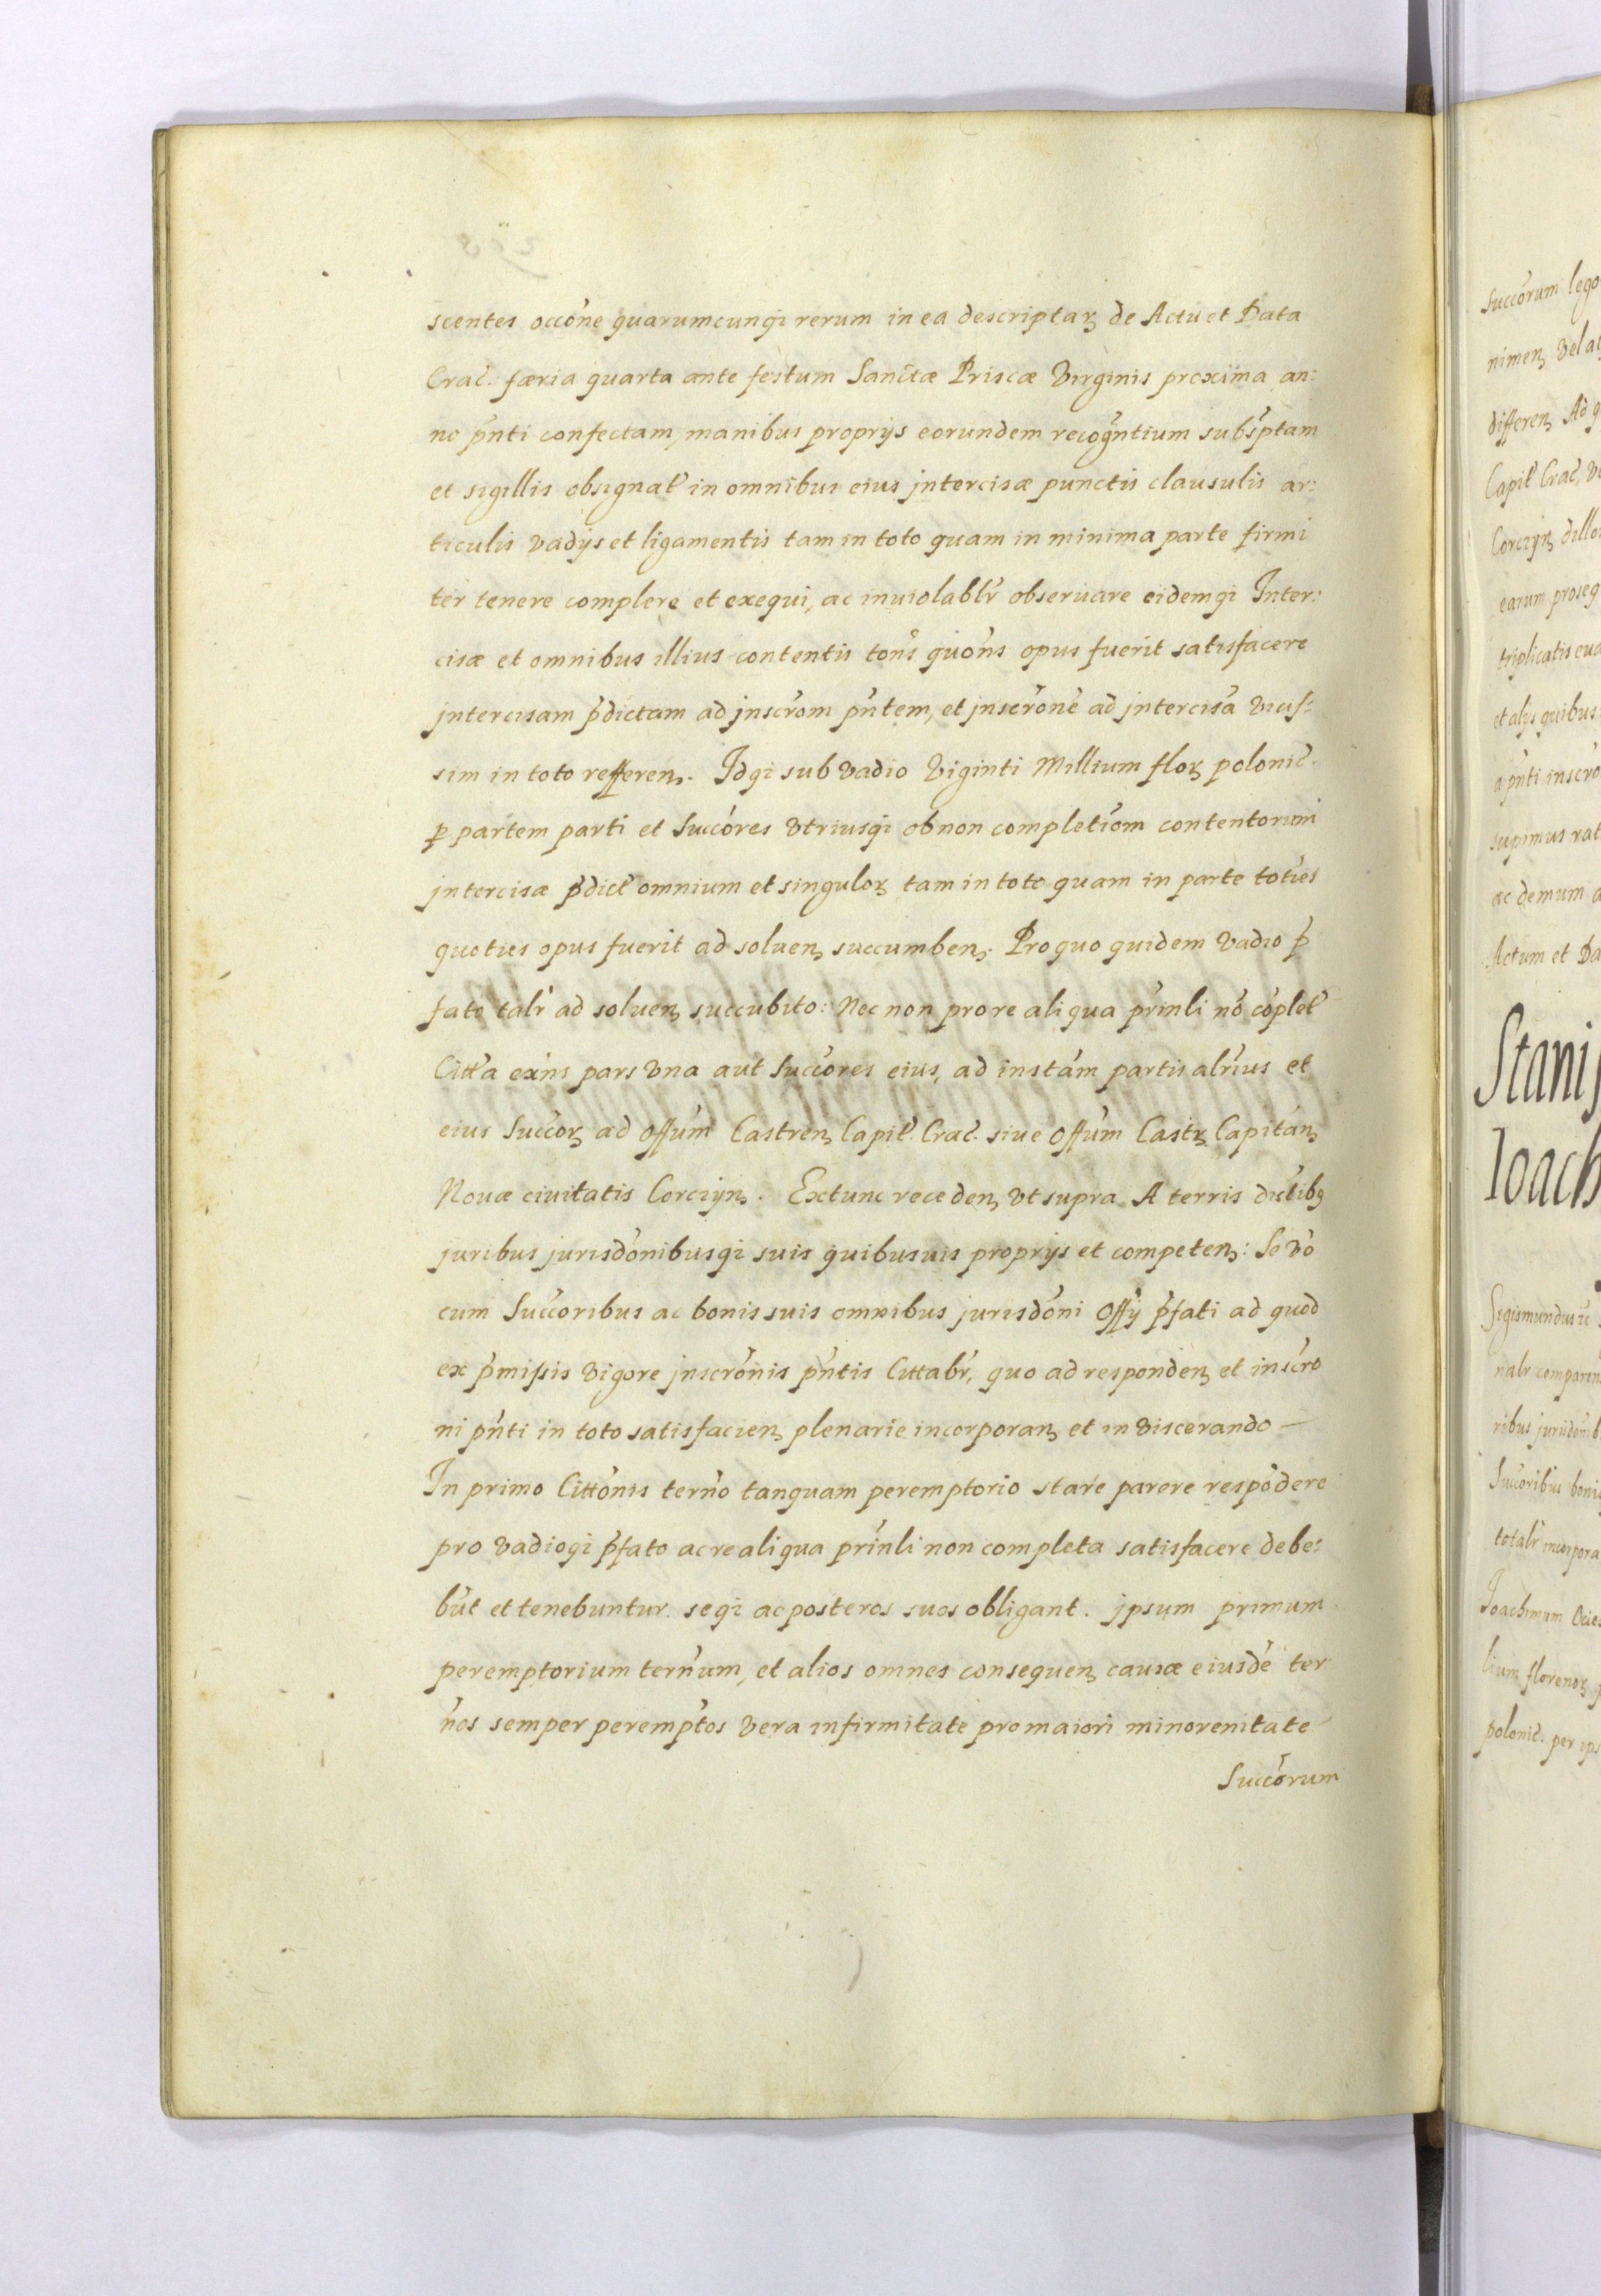 scentes occōne quarumcunqi rerum in ea descriptaꝝ de Actu et Data
Crac̄. færia quarta ante festum Sanctæ Priscæ Virginis proxima an:
no p̄nti confectam, manibus proprijs eorundem recoḡntium subsp̄tam
et sigillis obsignat̄ in omnibus eius jntercisæ punctis clausulis ar:
ticulis vadijs et ligamentis tam in toto quam in minima parte firmi
ter tenere complere et exequi, ac inuiolablr̄ obseruare eidemqi Inter:
cisæ et omnibus illius contentis tōns quōns opus fuerit satisfacere
jntercisam p̄dictam ad jnscrōm pn̄tem, et jnscrōnē ad jntercisā vicis:
sim in toto refferenꝫ. Idqi sub vadio Viginti Millium floꝝ polonic̄.
ꝑ partem parti et Succōres vtriusqi ob non completīom contentorum
jntercisæ p̄dict̄ omnium et singuloꝝ tam in toto quam in parte toties
quoties opus fuerit ad soluenꝫ succumbenꝫ. Pro quo quidem vadio p̄
fato talr̄ ad soluenꝫ succubito: Nec non pro re aliqua prīnli nō cōplet̄
Citt̄a exn̄s pars vna aut Succōres eius, ad instām partis alrīus et
eius Succoꝝ ad Offūm Castrenꝫ Capit̄. Crac̄. siue Offūm Castꝝ Capitānꝫ
Nouæ ciuitatis Corczynꝫ. Extunc recedenꝫ vt supra A terris dictibꝰ
juribus jurisdōnibusqi suis quibusuis proprijs et competenꝫ: Se vō
cum Succoribus ac bonis suis omnibus jurisdōni Offij p̄fati ad quod
ex p̄missis vigore jnscrōnis pn̄tis Cittabr̄, quo ad respondenꝫ et inscrō
ni pn̄ti in toto satisfacienꝫ plenarie incorporanꝫ et inviscerando —
In primo Cittōnis tern̄o tanquam peremptorio stare parere respōdere
pro vadioqi p̄fato ac re aliqua prīnli non completa satisfacere debe:
būt et tenebuntur. seqi ac posteros suos obligant. jpsum primum
peremptorium tern̄um, et alios omnes consequenꝫ causæ eiusdē ter
n̄os semper peremp̄tos vera infirmitate pro maiori minorenitate
Succōrum
succōrum
Capit̄ Crac̄,
et alijs quibus
Actum et
Sigismundus
Joachimum
polonic̄. per